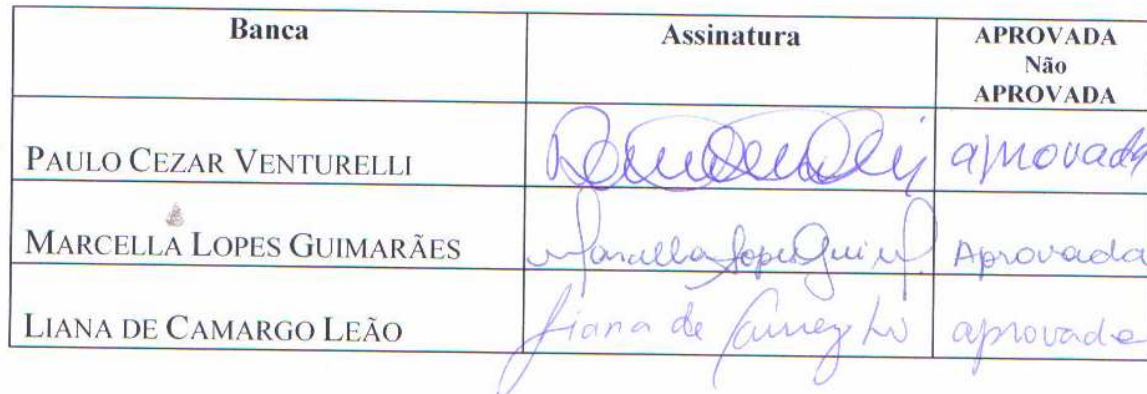 Banca Assinatura APROVADA
Não
APROVADA
PAULO CEZAR VENTURELLI aprovada
MARCELLA LOPES GUIMARÃES Marcella Lopes Guim. Aprovada
LIANA DE CAMARGO LEÃO Liana de aprovada